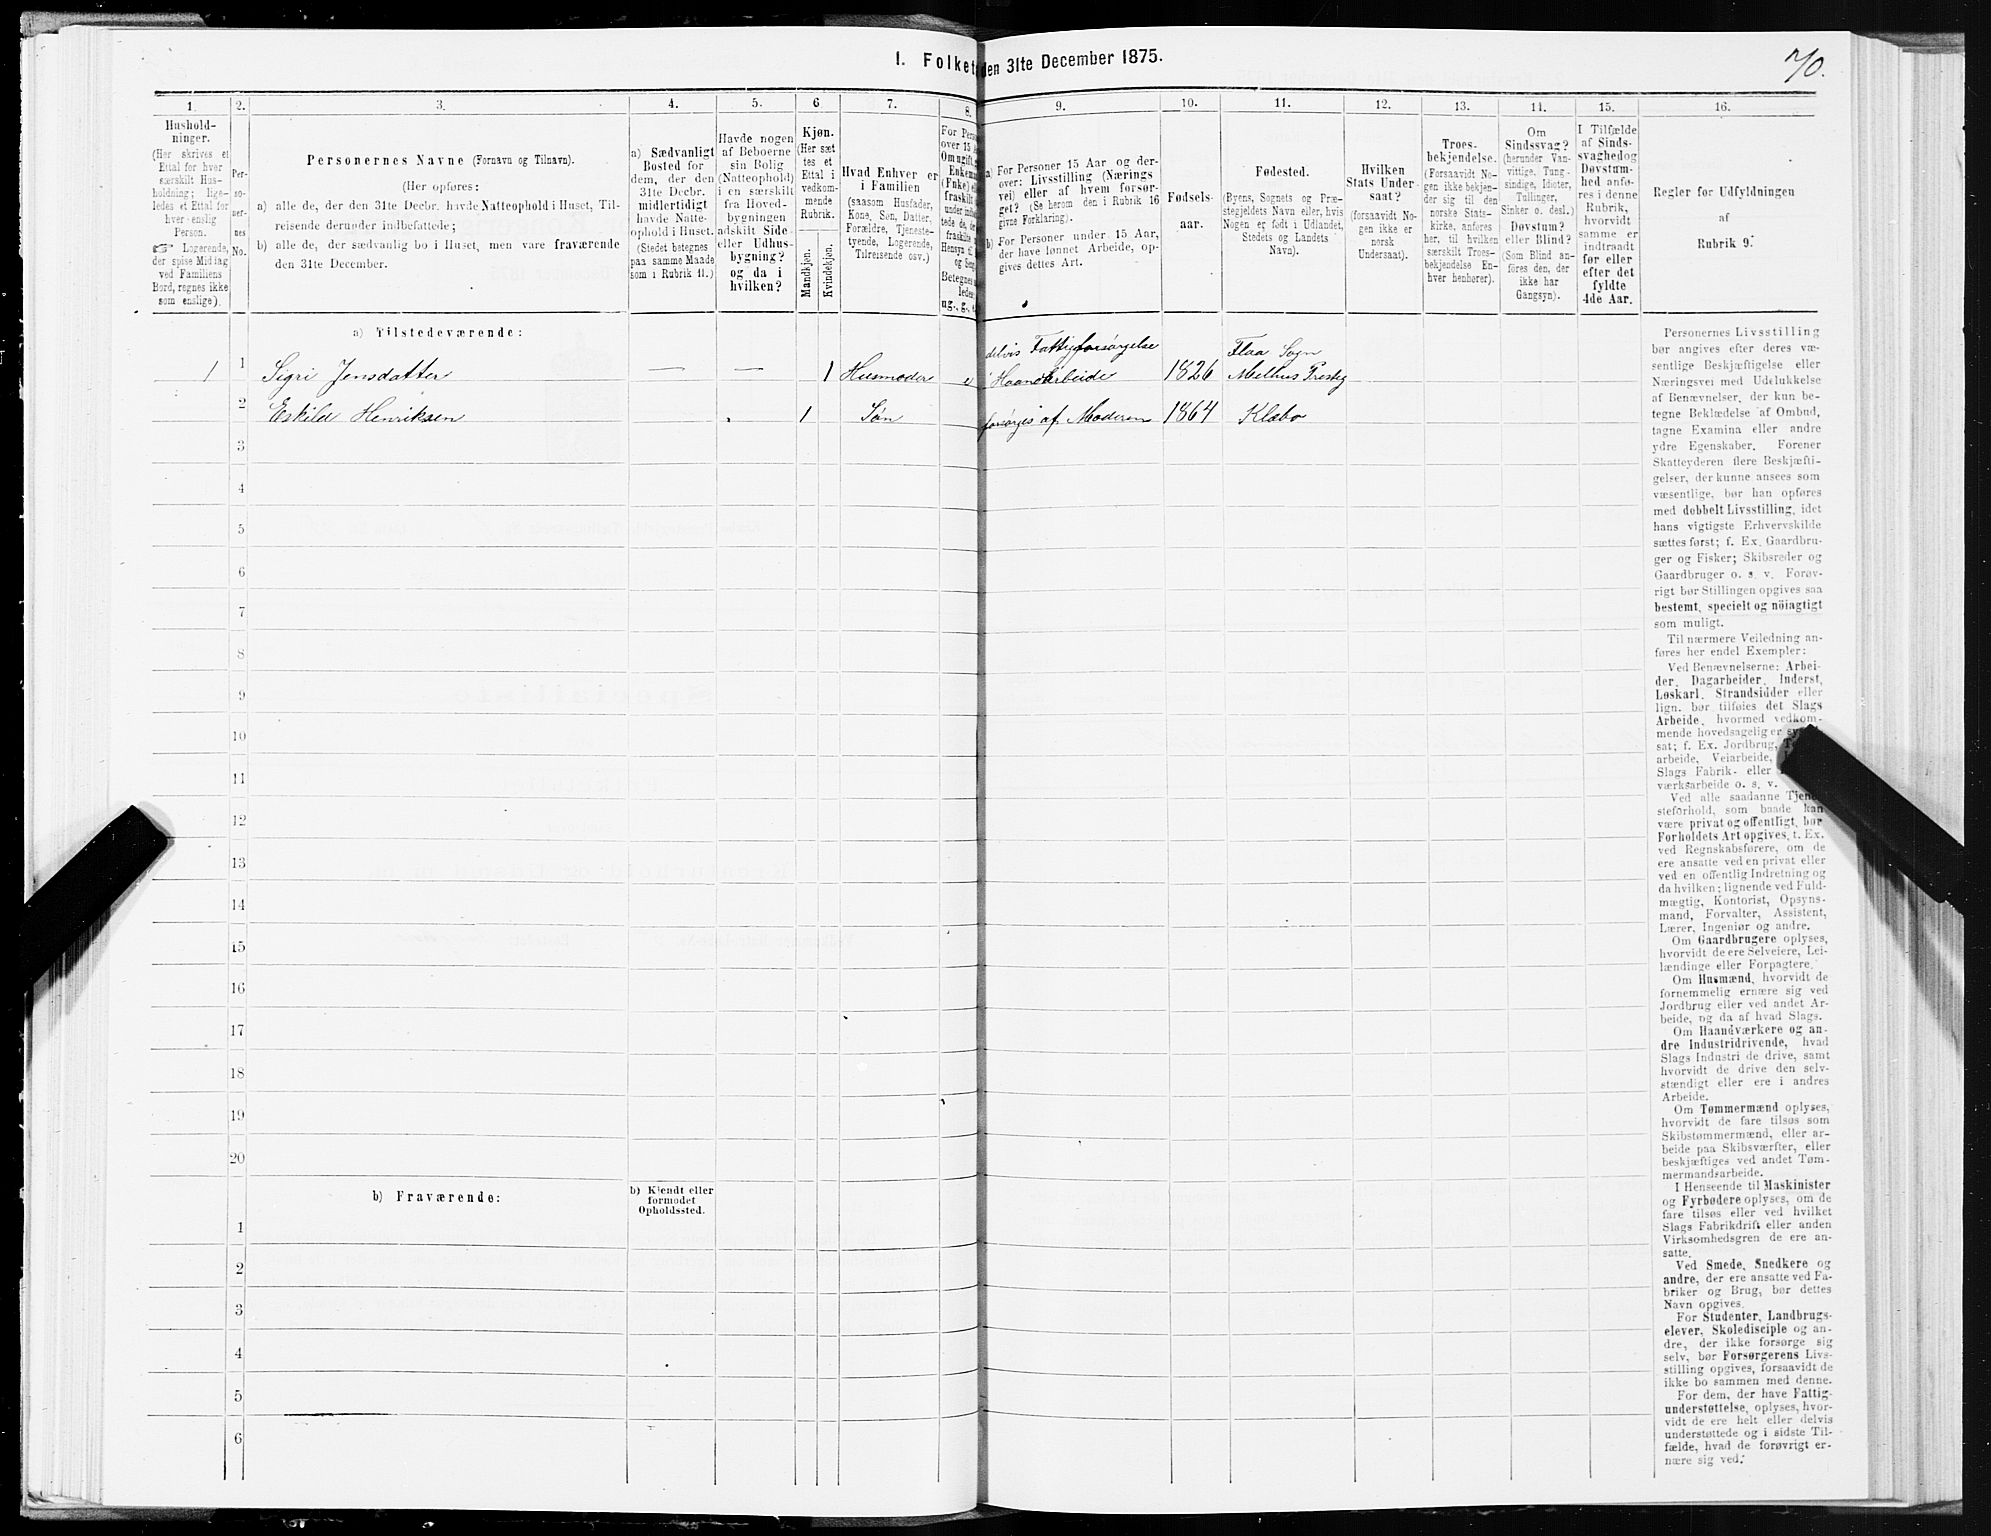 I. Folket
den 31te December 1875.
70.
1.
2.
3.
4.
5.
6
7.
8.
9.
10.
11.
12.
13.
14.
15.
16.
Hushold-
ninger.
(Her skrives et
Ettal for hver
særskilt Hus-
holdning; lige-
ledes et Ettal for
hver enslig
Person.
☞ Logerende,
der spise Middag
ved Familiens
Bord, regnes ikke
som enslige).
Per-
so-
ner-
nes
No.
Personernes Navne (Fornavn og Tilnavn).
(Her opføres:
a) alle de, der den 31te Decbr. havde Natteophold i Huset, Til-
reisende derunder indbefattede;
b) alle de, der sædvanlig bo i Huset, men vare fraværende
den 31te December.
a) Sædvanligt
Bosted for
dem, der den
31te Decbr.
midlertidigt
havde Natte-
ophold i Huset.
(Stedet betegnes
paa samme Maade
som i Rubrik 11.)
Havde nogen
af Beboerne
sin Bolig
(Natteophold)
i en særskilt
fra Hoved-
bygningen
adskilt Side-
eller Udhus-
bygning?
og da i
hvilken?
Kjøn.
(Her sæt
tes et
Ettal i
vedkom-
mende
Rubrik.
Mandkjøn.
Kvindekjøn.
Hvad Enhver er
i Familien
(saasom Husfader,
Kone, Søn, Datter,
Forældre, Tjeneste-
tyende, Logerende,
Tilreisende osv.)
For Perso
over 15 A
Om ugift,
Enkema
(Enke) el
fraskilt
a) For Personer 15 Aar og der-
over: Livsstilling (Nærings
vei) eller af hvem forsør-
get? (Se herom den i Rubrik 16
givne Forklaring).
b) For Personer under 15 Aar,
der have lønnet Arbeide, op-
gives dettes Art.
Fødsels-
aar.
Fødested.
(Byens, Sognets og Præ-
stegjeldets Navn eller, hvis
Nogen er født i Udlandet,
Stedets og Landets
Navn).
Hvilken
Stats Under-
saat?
(forsaavidt No-
gen ikke er
norsk
Undersaat).
Troes-
bekjendelse.
(Forsaavidt No-
gen ikke bekjen-
der sig til den
norske Stats-
kirke, anføres
her, til hvilken
særskilt Troes-
bekjendelse En-
hver henhører).
Om
Sindssvag?
(herunder Van-
vittige, Tung-
sindige, Idioter,
Tullinger,
Sinker o. desl.)
Døvstum?
eller Blind?
(Som Blind an-
føres den, der
ikke har
Gangsyn).
I Tilfælde
af Sinds-
svaghed og
Døvstum-
hed anfø-
res i denne
Rubrik,
hvorvidt
samme er
indtraadt
før eller
efter det
fyldte
4de Aar.
Regler for Udfyldningen
af
Rubrik 9.
a) Tilstedeværende:
1 1 Sigri Jensdatter — — 1 Husmoder e delvis Fattigforsørgelse Haandarbeide 1826 Flaa Sogn Melhus Prestg
2 Eskild Henriksen 1 Søn forsørges af Moderen 1864 Klæbo
3
4
5
6
7
8
9
10
11
12
13
14
15
16
17
18
19
20
b) Fraværende:
b) Kjendt eller
formodet
Opholdssted.
1
2
3
4
5
6
Personernes Livsstilling
bør angives efter deres væ-
sentlige Beskjæftigelse eller
Næringsvei med Udelukkelse
af Benævnelser, der kun be-
tegne Beklædelse af Ombud,
tagne Examina eller andre
ydre Egenskaber. Forener
Skatteyderen flere Beskjæfti-
gelser, der kunne ansees som
væsentlige, bør han opføres
med dobbelt Livsstilling, idet
hans vigtigste Erhvervskilde
sættes først; f. Ex. Gaardbru-
ger og Fisker; Skibsreder og
Gaardbruger o. s. v. Forøv-
rigt bør Stillingen opgives saa
bestemt, specielt og nöiagtigt
som muligt.
Til nærmere Veiledning an-
føres her endel Exempler:
Ved Benævnelserne: Arbei-
der, Dagarbeider, Inderst,
Løskarl, Strandsidder eller
lign. bør tilføies det Slags
Arbeide, hvormed vedkom-
mende hovedsagelig er sy
sat; f. Ex. Jordbrug, T
arbeide, Veiarbeide,
Slags Fabrik- eller
værksarbeide o. s. v.
Ved alle saadanne Tjene-
steforhold, som baade kan
være privat og offentligt, bør
Forholdets Art opgives, t. Ex.
ved Regnskabsførere, om de
ere ansatte ved en privat eller
ved en offentlig Indretning og
da hvilken; lignende ved Fuld-
mægtig, Kontorist, Opsyns-
mand, Forvalter, Assistent,
Lærer, Ingeniør og andre.
Om Gaardbrugere oplyses,
hvorvidt de ere Selveiere, Lei-
lændinge eller Forpagtere.
Om Husmænd, hvorvidt de
fornemmelig ernære sig ved
Jordbrug eller ved andet Ar-
beide, og da af hvad Slags.
Om Haandværkere og an-
dre Industridrivende, hvad
Slags Industri de drive, samt
hvorvidt de drive den selv-
stændigt eller ere i andres
Arbeide.
Om Tømmermænd oplyses,
hvorvidt de fare tilsøs som
Skibstømmermænd, eller ar-
beide paa Skibsværfter, eller
beskjæftiges ved andet Tøm-
mermandsarbeide.
I Henseende til Maskinister
og Fyrbødere oplyses, om de
fare tilsøs eller ved hvilket
Slags Fabrikdrift eller anden
Virksomhedsgren de ere an-
satte.
Ved Smede, Snedkere og
andre, der ere ansatte ved Fa-
briker og Brug, bør dettes
Navn opgives.
For Studenter, Landbrugs-
elever, Skoledisciple og an-
dre, der ikke forsørge sig
selv, bør Forsørgerens Livs-
stilling opgives, forsaavidt de
ikke bo sammen med denne.
For dem, der have Fattig-
understøttelse, oplyses, hvor-
vidt de ere helt eller delvis
understøttede og i sidste Til-
fælde, hvad de forøvrigt er-
nære sig ved.